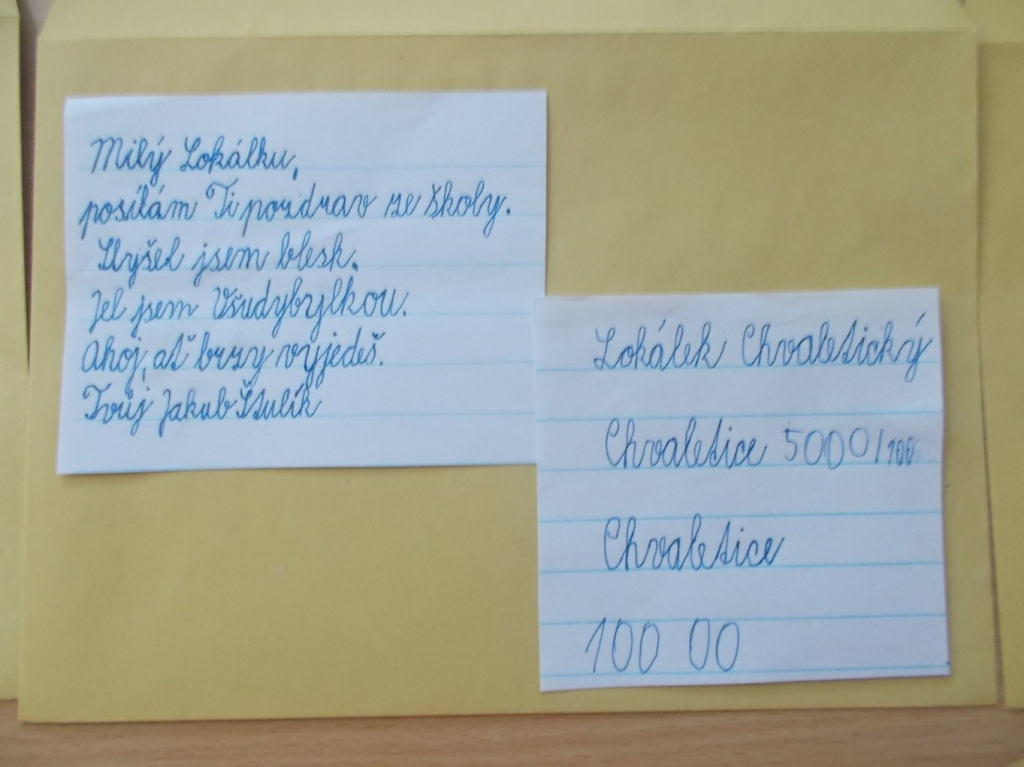 Milý Lokálku,
posílám Ti pozdrav ze školy.
Slyšel jsem blesk.
Jel jsem Všudybylkou.
Ahoj, ať brzy vyjedeš.
Tvůj Jakub Štulík
Lokálek Chvaletický
Chvaletice 5000/100
Chvaletice
100 00